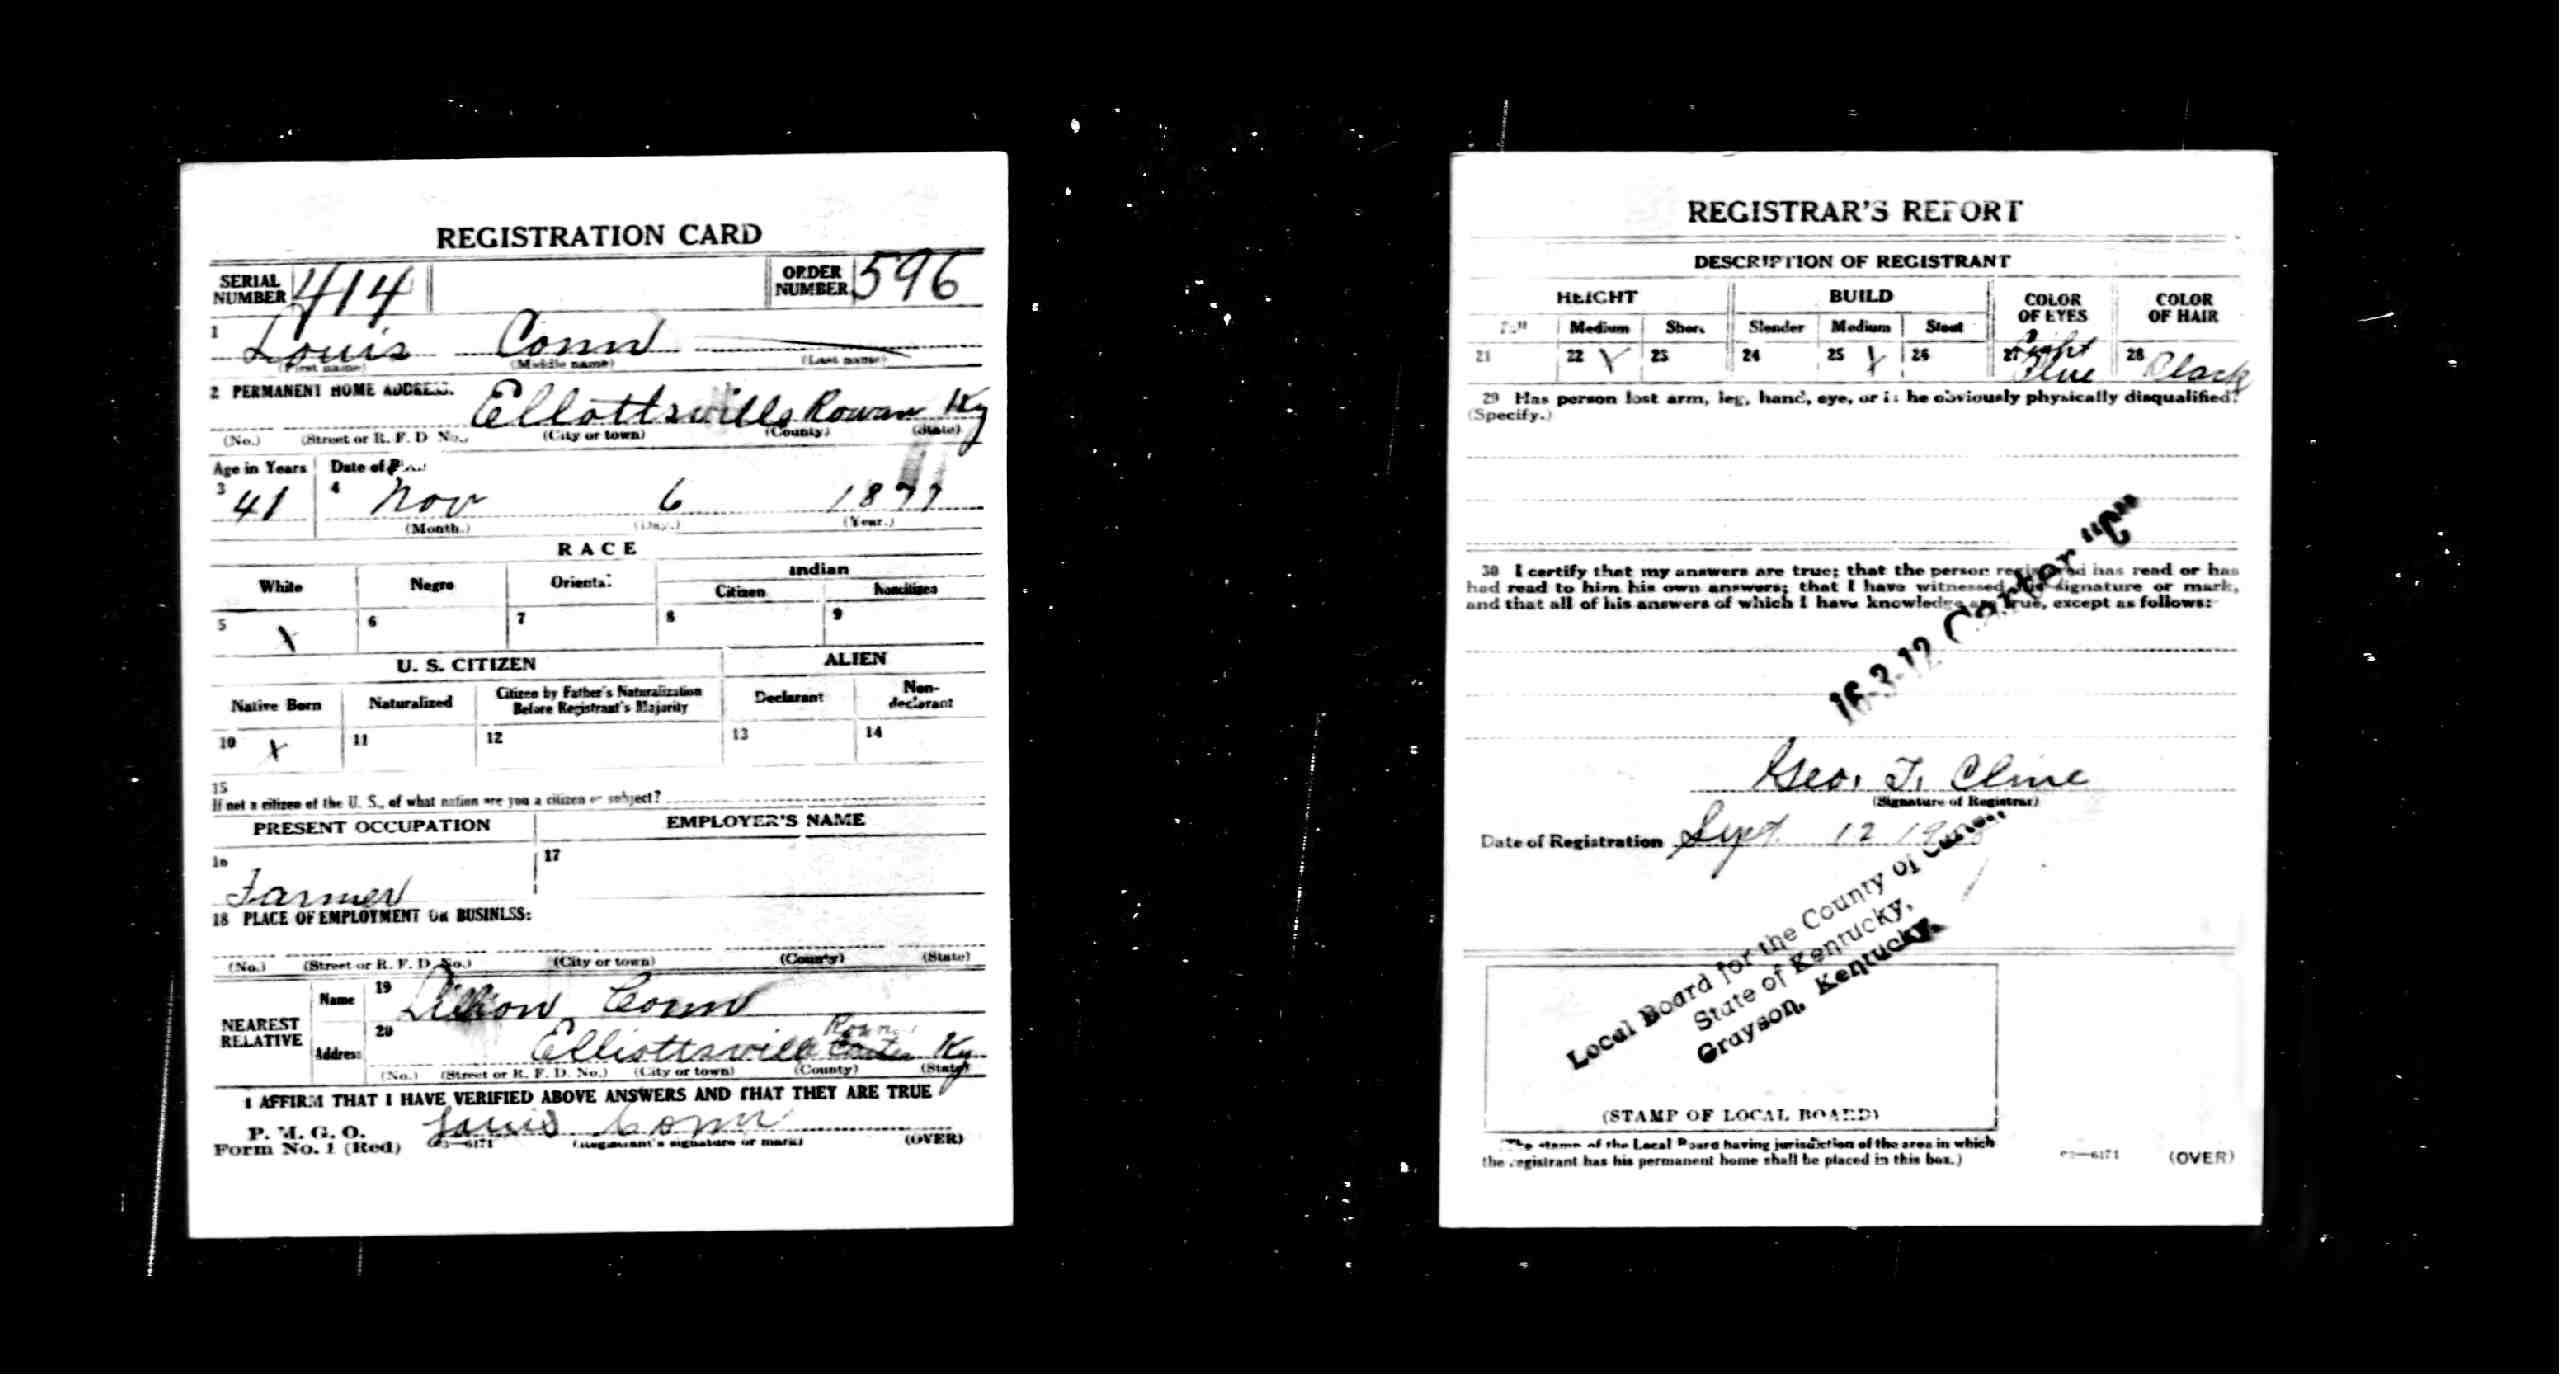 REGISTRATION CARD
SERIAL NUMBER 414 ORDER NUMBER 596
1 Louis Conn
(First name) (Middle name) (Last name)
2 PERMANENT HOME ADDRESS.
Ellottsville Rowan Ky
(No.) (Street or R. F. D. No.) (City or town) (County) (State)
Age in Years Date of
3 41 4 Nov 6 1877
(Month.) (Day.) (Year.)
RACE
White Negro Oriental Indian
Citizen Noncitizen
5 X 6 7 8 9
U. S. CITIZEN ALIEN
Native Born Naturalized Citizen by Father's Naturalization Before Registrant's Majority Declarant Non-declarant
10 X 11 12 13 14
15
If not a citizen of the U. S., of what nation are you a citizen or subject?
PRESENT OCCUPATION EMPLOYER'S NAME
16 17
Farmer
18 PLACE OF EMPLOYMENT OR BUSINESS:
(No.) (Street or R. F. D. No.) (City or town) (County) (State)
NEAREST RELATIVE Name 19 Conn
Address 20 Elliottsvill Rowan Carter Ky
(No.) (Street or R. F. D. No.) (City or town) (County) (State)
I AFFIRM THAT I HAVE VERIFIED ABOVE ANSWERS AND THAT THEY ARE TRUE
P. M. G. O. Louis Conn
Form No. 1 (Red) 03—6171 (Registrant's signature or mark) (OVER)
REGISTRAR'S REPORT
DESCRIPTION OF REGISTRANT
HEIGHT BUILD COLOR OF EYES COLOR OF HAIR
Tall Medium Short Slender Medium Stout
21 22 X 23 24 25 X 26 27 Light Blue 28 Black
29 Has person lost arm, leg, hand, eye, or is he obviously physically disqualified?
(Specify.)
30 I certify that my answers are true; that the person registered has read or has
had read to him his own answers; that I have witnessed his signature or mark,
and that all of his answers of which I have knowledge are true, except as follows:
16-3-12 Carter "C"
Geo. T. Cline
(Signature of Registrar)
Date of Registration Sept 12
Local Board for the County of Carter,
State of Kentucky,
Grayson, Kentucky.
(STAMP OF LOCAL BOARD)
(The stamp of the Local Board having jurisdiction of the area in which
the registrant has his permanent home shall be placed in this box.)
03—6171 (OVER)